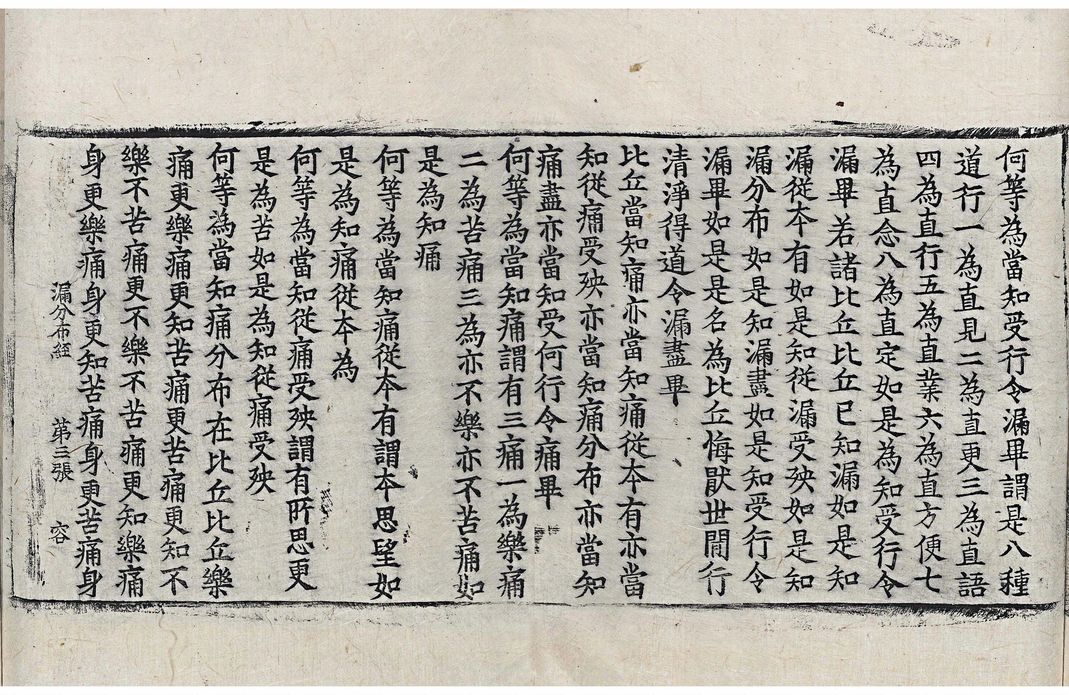 何等為當知受行令漏畢謂是八種
道行一為直見二為直更三為直語
四為直行五為直業六為直方便七
為直念八為直定如是為知受行令
漏畢若諸比丘比丘已知漏如是知
漏從本有如是知從漏受殃如是知
漏分布如是知漏盡如是知受行令
漏畢如是是名為比丘悔猒世閒行
清淨得道令漏盡畢
比丘當知痛亦當知痛從本有亦當
知從痛受殃亦當知痛分布亦當知
痛盡亦當知受何行令痛畢
何等為當知痛謂有三痛一為樂痛
二為苦痛三為亦不樂亦不苦痛如
是為知痛
何等為當知痛從本有謂本思望如
是為知痛從本為
何等為當知從痛受殃謂有所思更
是為苦如是為知從痛受殃
何等為當知痛分布在比丘比丘樂
痛更樂痛更知苦痛更苦痛更知不
樂不苦痛更不樂不苦痛更知樂痛
身更樂痛身更知苦痛身更苦痛身
漏分布經 第三張 容